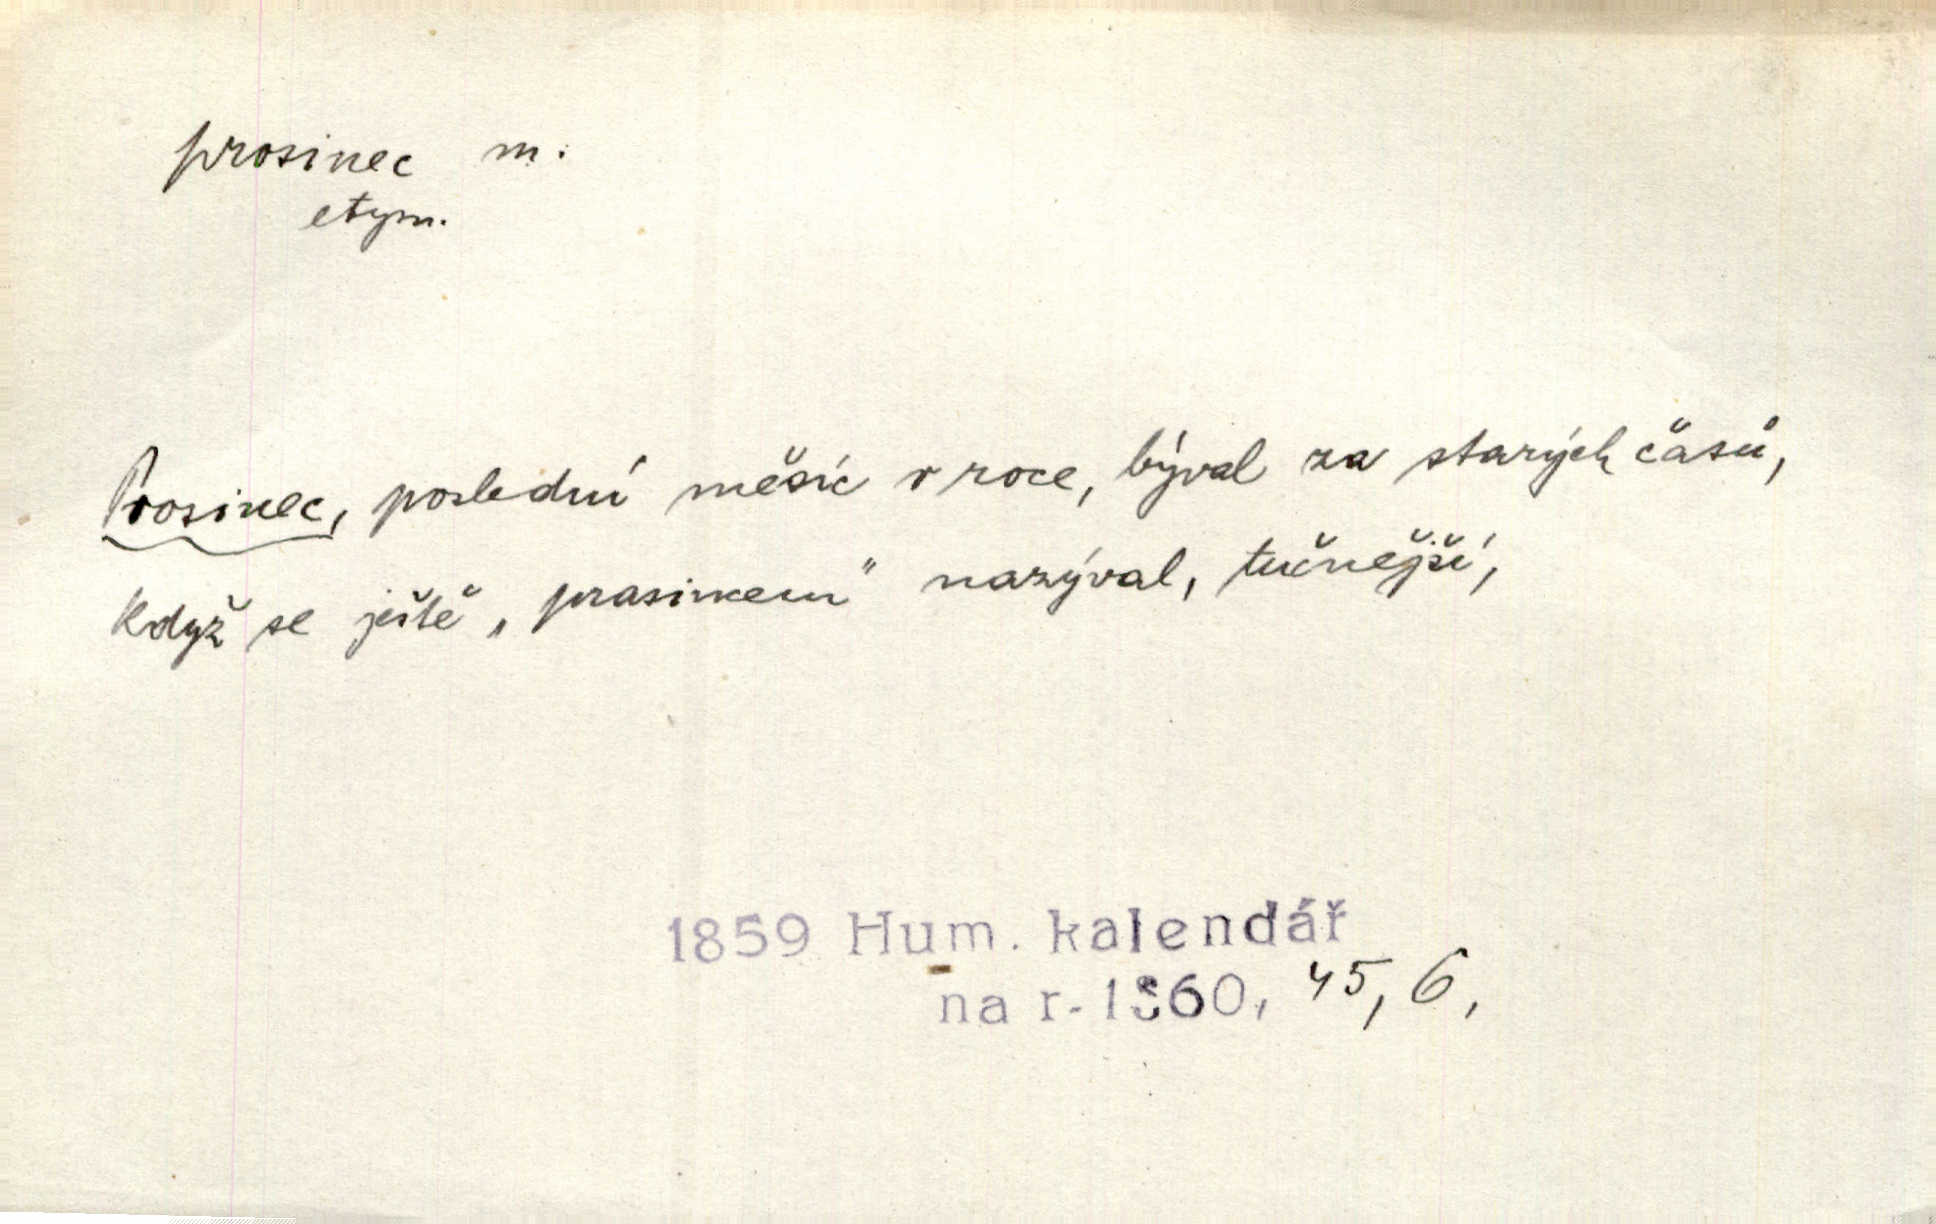 prosinec m.
etym.
Prosinec, poslední měsíc v roce, býval za starých časů,
když se ještě „prasincem" nazýval, tučnější,
1859 Hum. kalendář
na r. 1860, 45, 6,